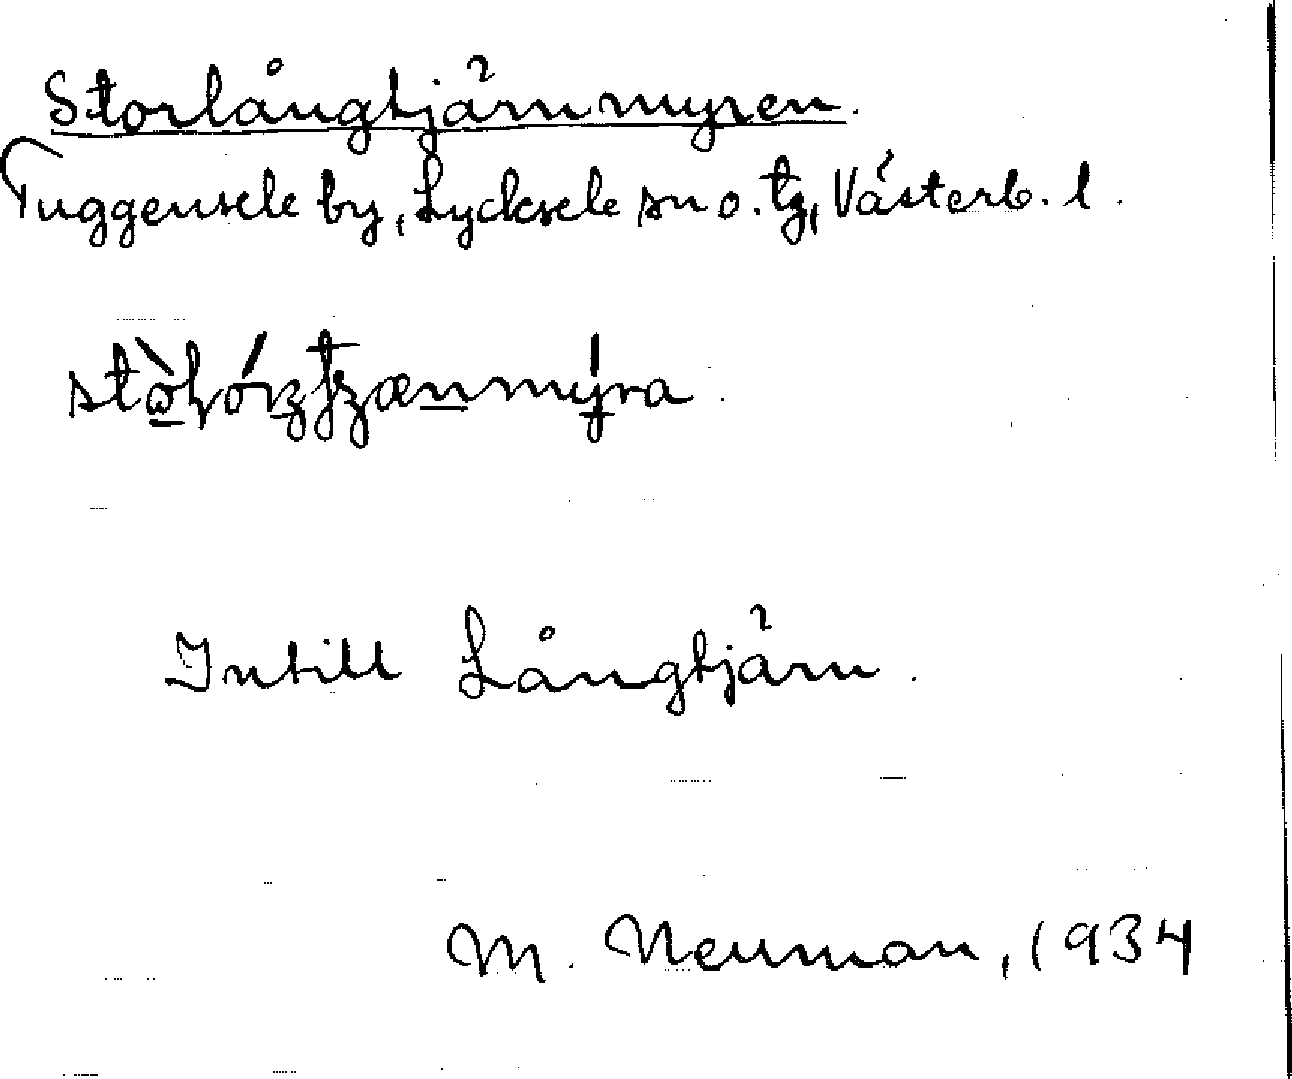 Storlångtjärnmyren.
Tuggensele by, Lycksele sn o. tg, Västerb. l.
Intill Långtjärn.
M. Neuman, 1934